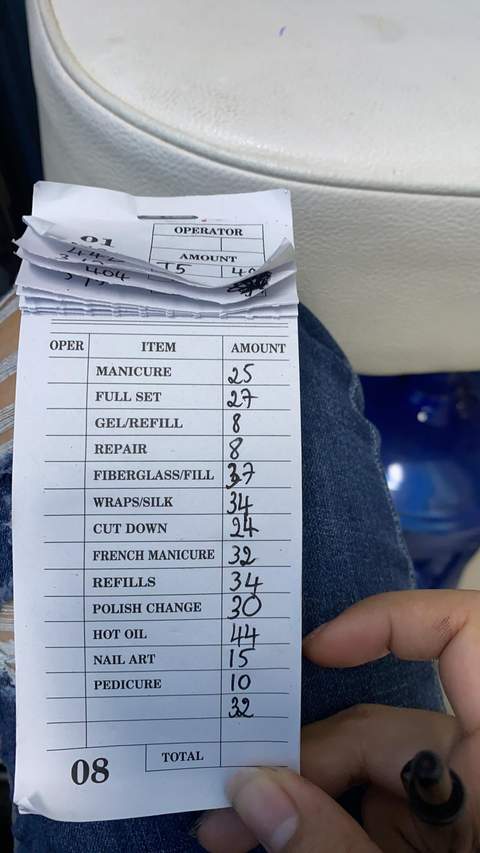 01
OPERATOR
AMOUNT
404
OPER ITEM AMOUNT
MANICURE 25
FULL SET 27
GEL/REFILL 8
REPAIR 8
FIBERGLASS/FILL 37
WRAPS/SILK 34
CUT DOWN 24
FRENCH MANICURE 32
REFILLS 34
POLISH CHANGE 30
HOT OIL 44
NAIL ART 15
PEDICURE 10
32
08 TOTAL